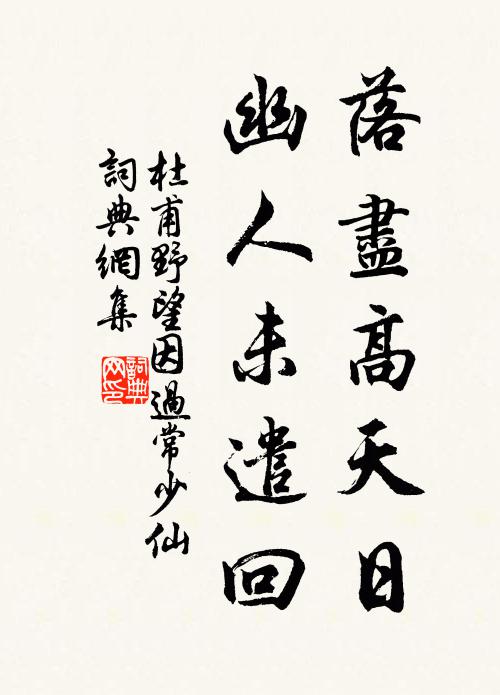 落盡高天日
幽人未遣回
杜甫野望因過常少仙
詞典網集
詞典网印